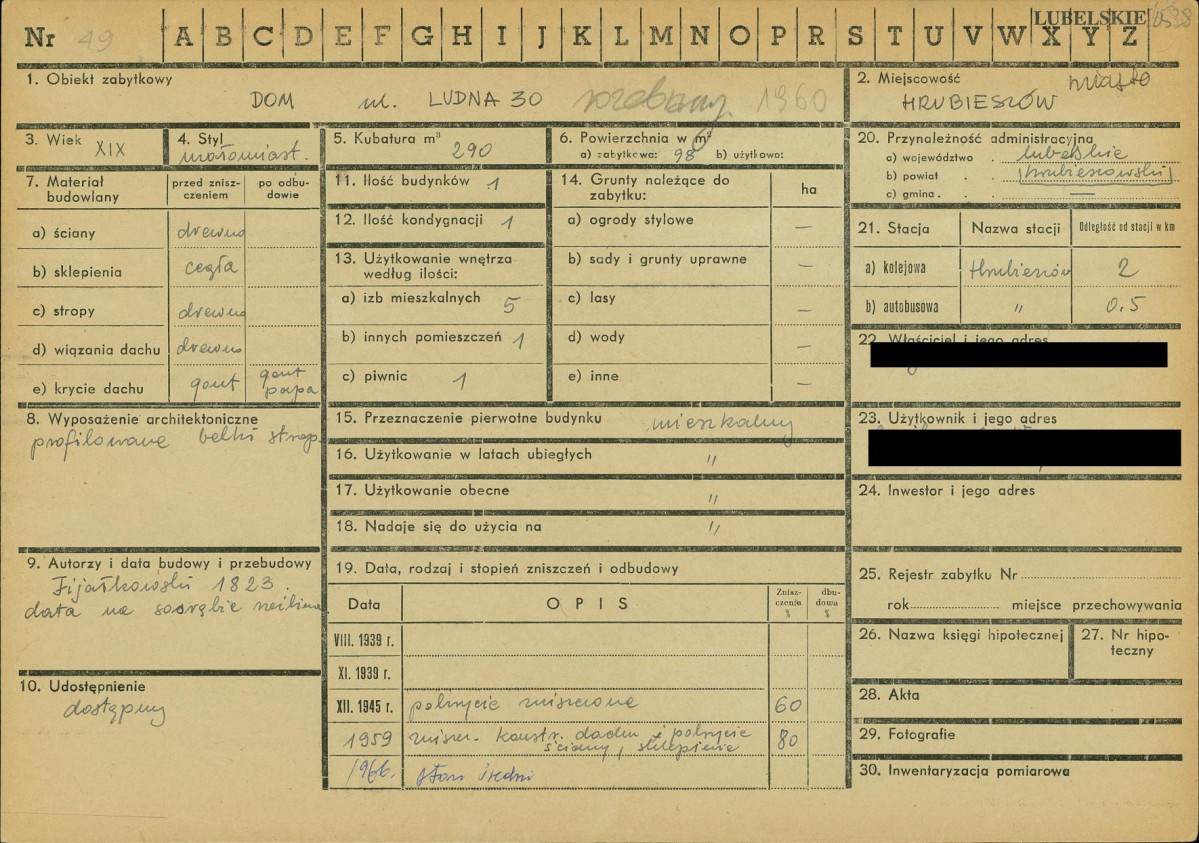 Nr 49 A B C D E F G H I J K L M N O P R S T U V W X Y Z
LUBELSKIE
1. Obiekt zabytkowy
DOM ul. LUDNA 30 rozebrany 1960
2. Miejscowość
miasto
HRUBIESZÓW
3. Wiek XIX
4. Styl
małomiast.
5. Kubatura m³
290
6. Powierzchnia w m²
a) zabytkowa: 98 b) użytkowa:
7. Materiał budowlany
przed zniszczeniem
po odbudowie
a) ściany drewno
b) sklepienia cegła
c) stropy drewno
d) wiązania dachu drewno
e) krycie dachu gont gont papa
8. Wyposażenie architektoniczne
profilowane belki strop.
9. Autorzy i data budowy i przebudowy
Fijałkowski 1823.
data na sosrębie
10. Udostępnienie
dostępny
11. Ilość budynków 1
12. Ilość kondygnacji 1
13. Użytkowanie wnętrza według ilości:
a) izb mieszkalnych 5
b) innych pomieszczeń 1
c) piwnic 1
14. Grunty należące do zabytku:
ha
a) ogrody stylowe —
b) sady i grunty uprawne —
c) lasy —
d) wody —
e) inne —
15. Przeznaczenie pierwotne budynku mieszkalny
16. Użytkowanie w latach ubiegłych "
17. Użytkowanie obecne "
18. Nadaje się do użycia na "
19. Data, rodzaj i stopień zniszczeń i odbudowy
Data OPIS Zniszczenie % dbudowa %
VIII. 1939 r.
XI. 1939 r.
XII. 1945 r. pokrycie zniszczone 60
1959 zniszcz. konstr. dachu i pokrycie 80
ściany, sklepienie
1966. stan średni
20. Przynależność administracyjna
a) województwo . lubelskie
b) powiat . . hrubieszowski
c) gmina . . —
21. Stacja Nazwa stacji Odległość od stacji w km
a) kolejowa Hrubieszów 2
b) autobusowa " 0.5
22. Właściciel i jego adres
23. Użytkownik i jego adres
24. Inwestor i jego adres
25. Rejestr zabytku Nr
rok miejsce przechowywania
26. Nazwa księgi hipotecznej
27. Nr hipoteczny
28. Akta
29. Fotografie
30. Inwentaryzacja pomiarowa